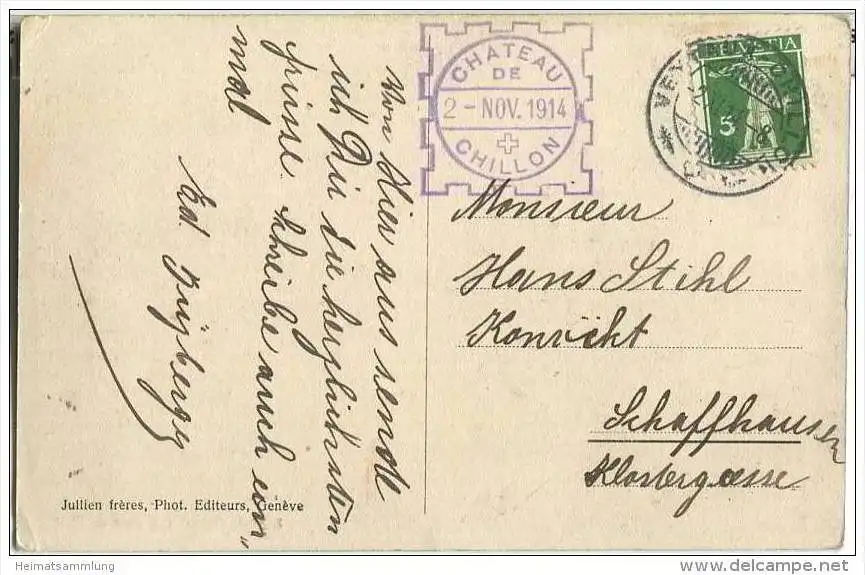 Von Hier aus sende
ich Dir die herzlichsten
Grüsse. Schreibe auch ein„
mal
Ed.
CHATEAU
DE
2 - NOV. 1914
CHILLON
HELVETIA
5
Monsieur
Hans Stihl
Konvikt
Schaffhausen
Klostergasse
Jullien frères, Phot. Editeurs, Genève
Heimatsammlung
www.delcampe.net